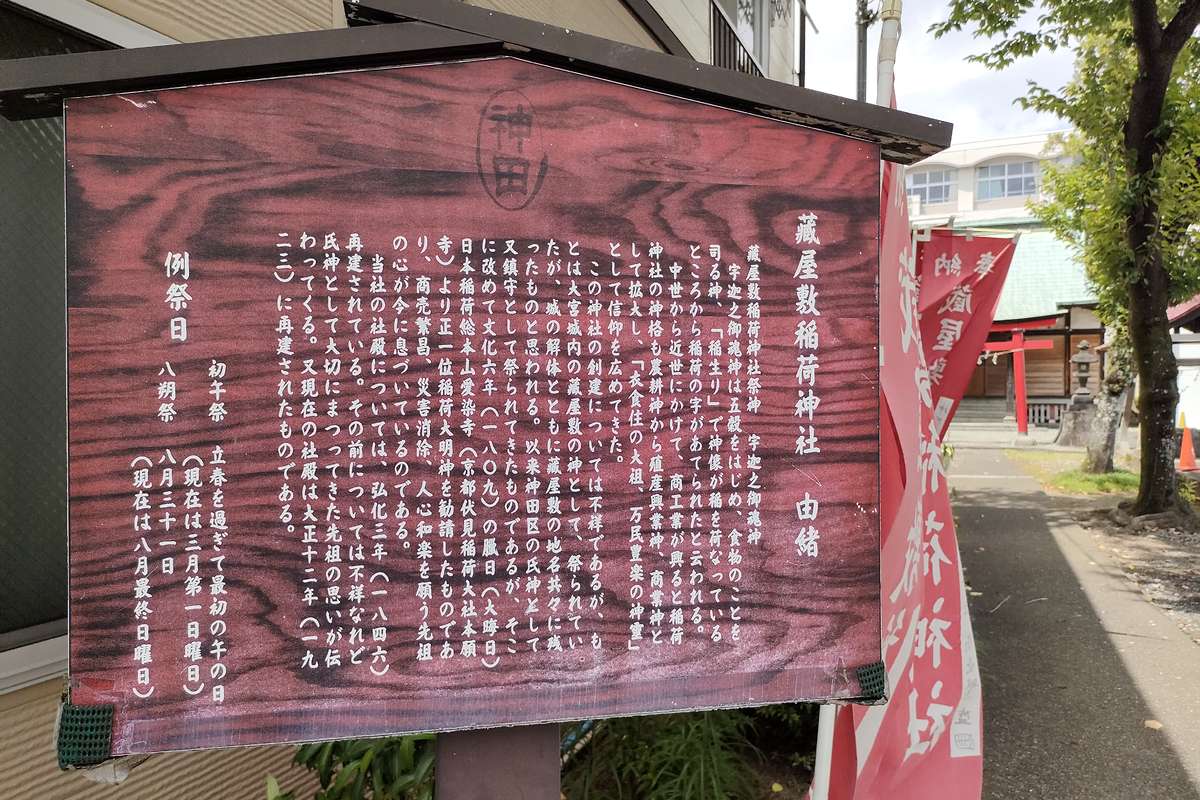 神田
藏屋敷稲荷神社　由緒
藏屋敷稲荷神社祭神　宇迦之御魂神
宇迦之御魂神は五穀をはじめ、食物のことを
司る神、「稲生り」で神像が稲を荷なっている
ところから稲荷の字があてられたと云われる。
中世から近世にかけて、商工業が興ると稲荷
神社の神格も農耕神から殖産興業神、商業神と
して拡大し、「衣食住の大祖、万民豊楽の神霊」
として信仰を広めてきた。
この神社の創建については不祥であるが、も
とは大宮城内の藏屋敷の神として、祭られてい
たが、城の解体とともに藏屋敷の地名共々に残
ったものと思われる。以来神田区の氏神として
又鎮守として祭られてきたものであるが、そこ
に改めて文化六年（一八〇九）の臘日（大晦日）
日本稲荷総本山愛染寺（京都伏見稲荷大社本願
寺）より正一位稲荷大明神を勧請したものであ
り、商売繁昌　災害消除、人心和楽を願う先祖
の心が今に息づいているのである。
当社の社殿については、弘化三年（一八四六）
再建されている。その前については不祥なれど
氏神として大切にまもってきた先祖の思いが伝
わってくる。又現在の社殿は大正十二年（一九
二三）に再建されたものである。
例祭日　初午祭　立春を過ぎて最初の午の日
（現在は三月第一日曜日）
八朔祭　八月三十一日
（現在は八月最終日曜日）
奉納
蔵屋敷
稲荷神社